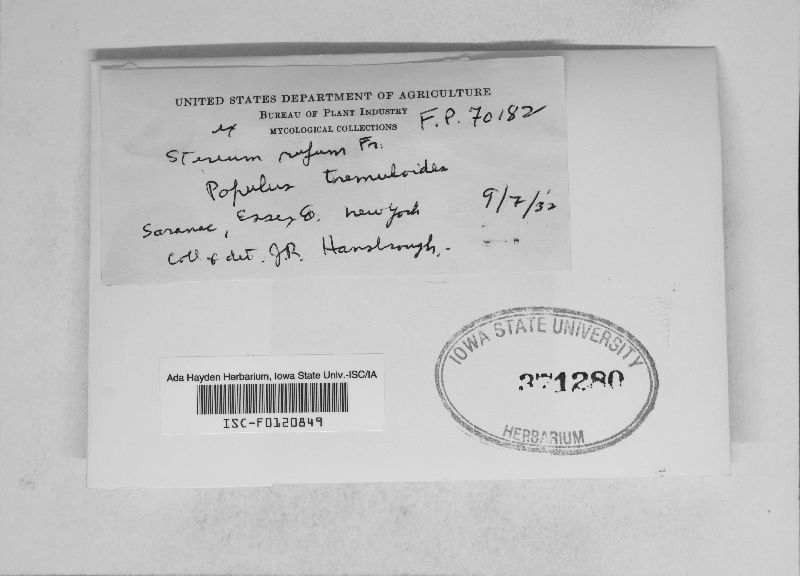 UNITED STATES DEPARTMENT OF AGRICULTURE
BUREAU OF PLANT INDUSTRY
ex MYCOLOGICAL COLLECTIONS F.P. 70182
Stereum rufum Fr.
Populus tremuloides
Saranac, Essex Co. New York 9/7/32
Coll & det. J.R. Hansbrough.-
IOWA STATE UNIVERSITY
371280
HERBARIUM
Ada Hayden Herbarium, Iowa State Univ.-ISC/IA
ISC-F0120849